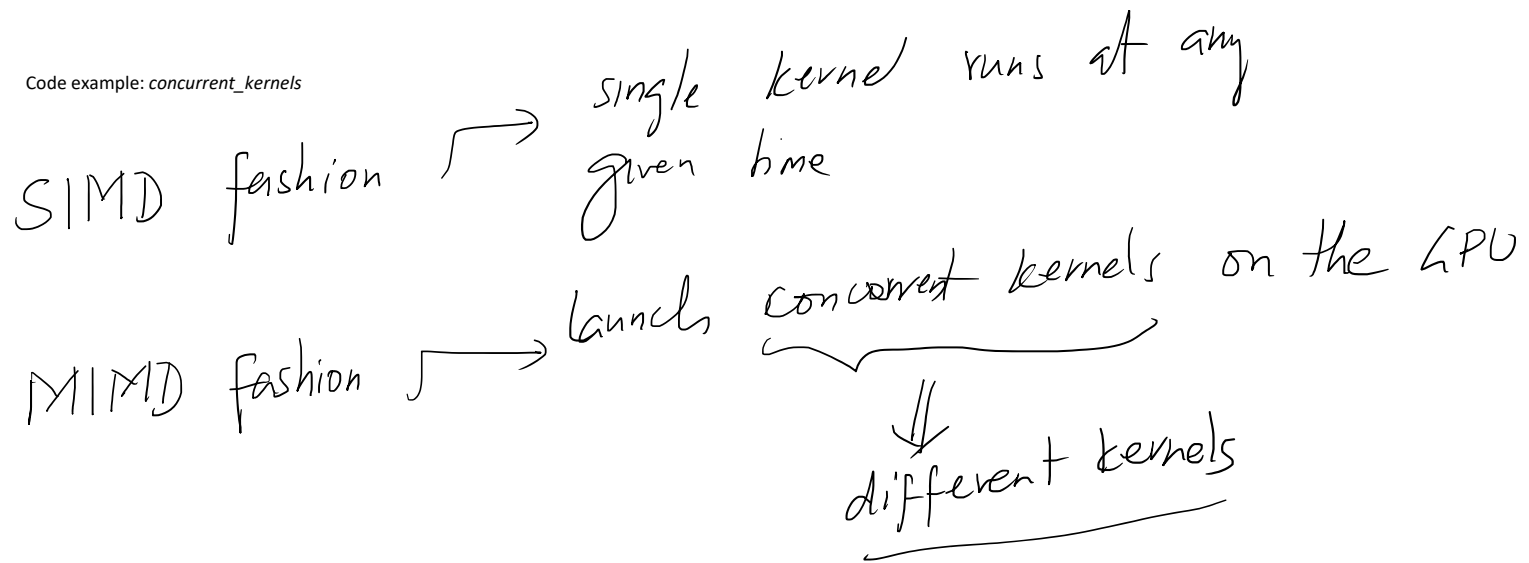 Code example: concurrent_kernels
SIMD fashion
single kernel runs at any
given time
MIMD fashion
launch concurrent kernels on the GPU
different kernels